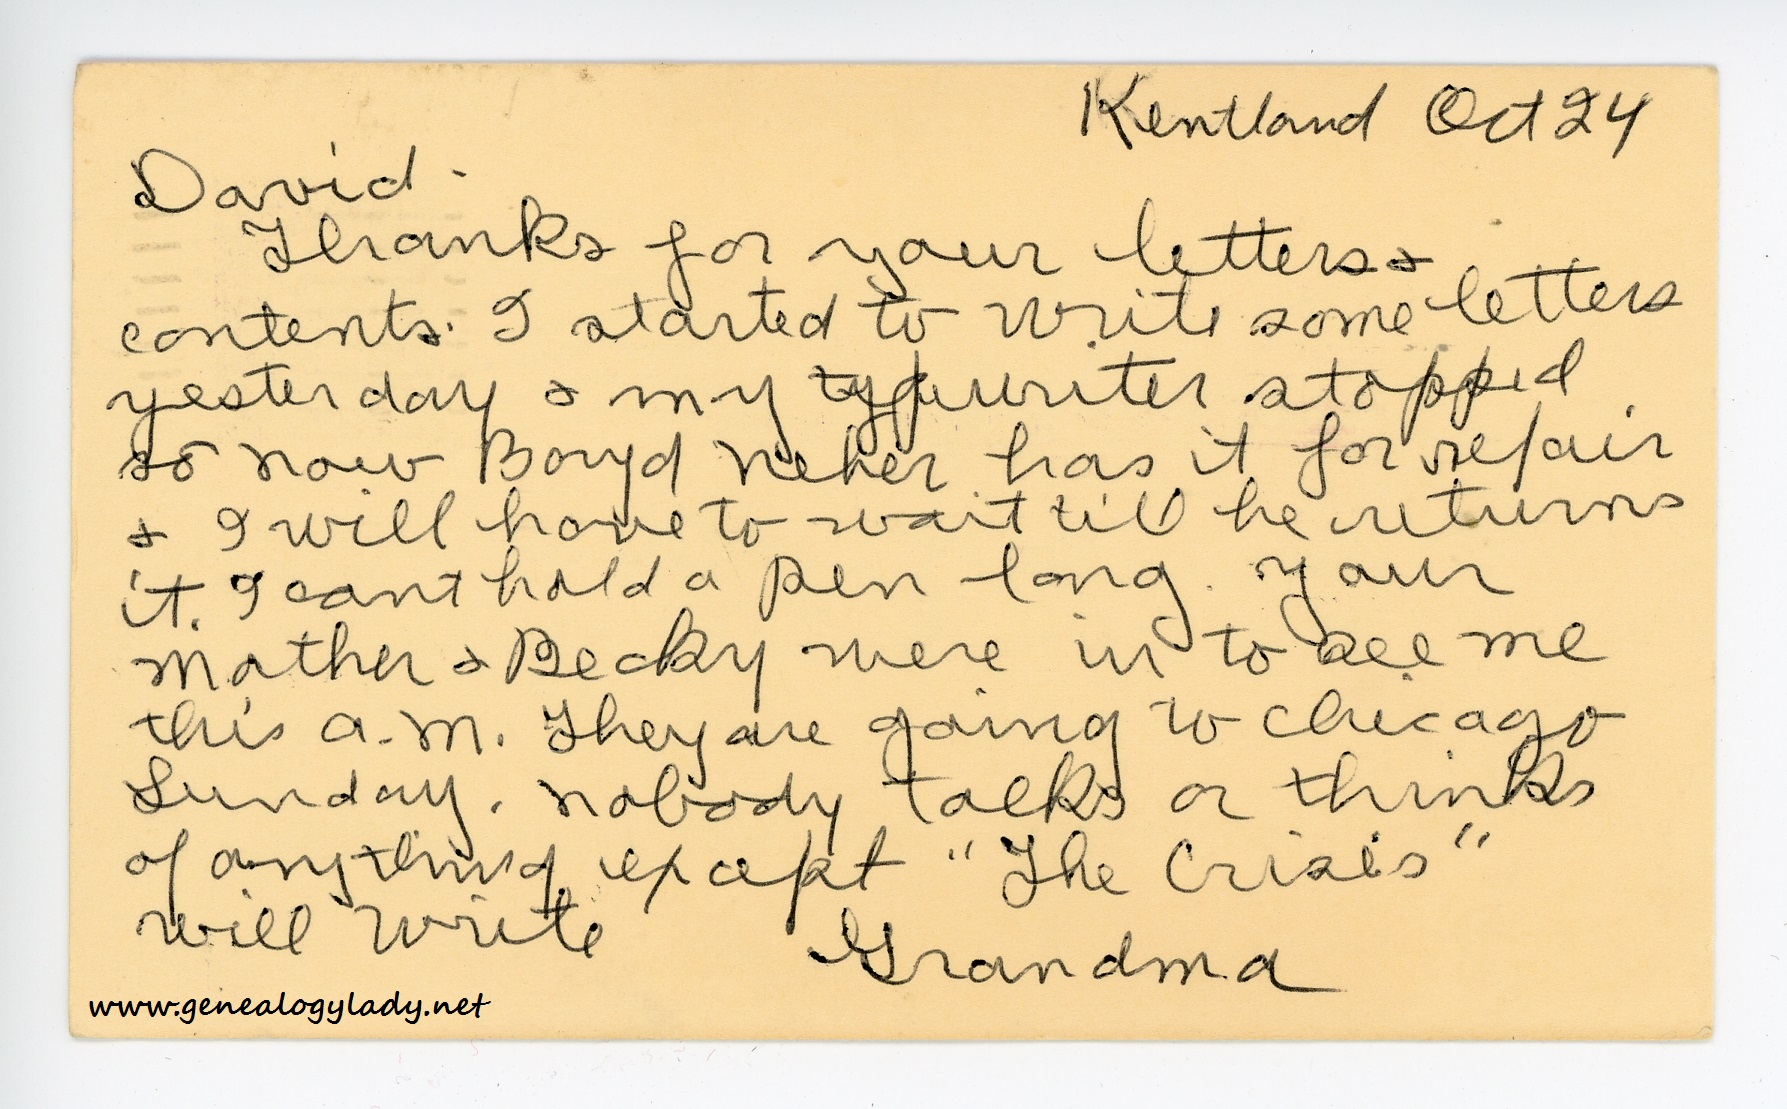 Kentland Oct 24
David.
Thanks for your letters &
contents. I started to write some letters
yesterday & my typewriter stopped
so now Boyd Neher has it for repair.
& I will have to wait till he returns
it. I cant hold a pen long. Your
Mother & Becky were in to see me
this A.M. They are going to Chicago
Sunday. Nobody talks or thinks
of anything except "The Crisis"
Will write
Grandma
www.genealogylady.net